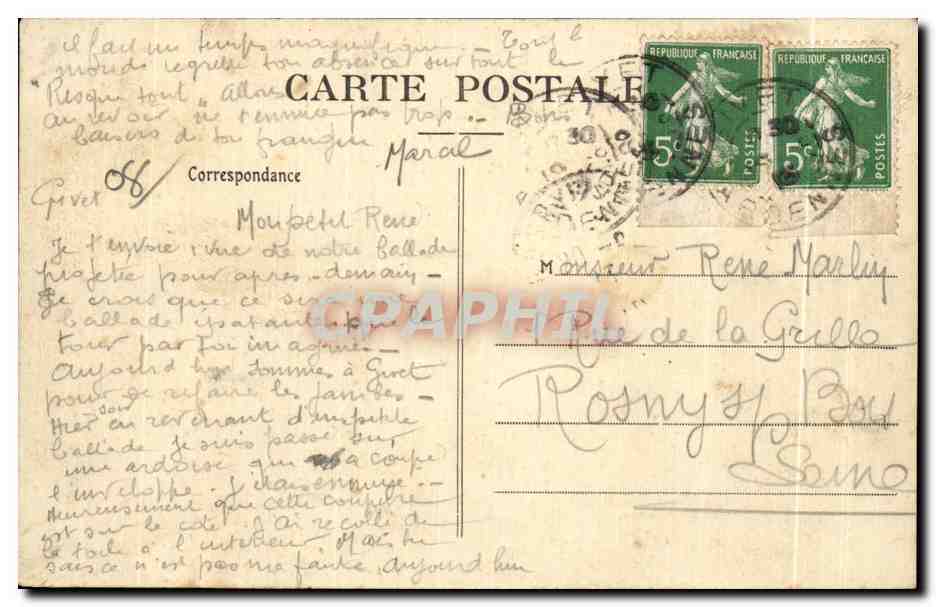 il fait un temps magnifique - Tout le
monde regrette ton absence surtout le
"Risque tout" Allons
au revoir ne t'ennuie pas trop. - Bons
baisers de ton frangin
Marcel
CARTE POSTALE
REPUBLIQUE FRANÇAISE
5c
POSTES
REPUBLIQUE FRANÇAISE
5c
POSTES
Correspondance
Givet 08/
Mon petit René
Je t'envoie 1 vue de notre ballade
projetée pour après-demain -
Je crois que ce sera une
ballade épatante
tour par
Aujourd'hui sommes à Givet
pour de refaire les jambes -
Hier soir en revenant d'1 petite
ballade je suis passé sur
une ardoise qui a coupé
l'enveloppe. J'étais ennuyé. -
Heureusement que cette coupure
est sur le coté. J'ai recollé de
la toile à l'intérieur Mais tu
sais ce n'est pas une fente, aujourd'hui
Monsieur René
Rue de la Grille
Rosny s/ Bois
Seine
CPAPHIL